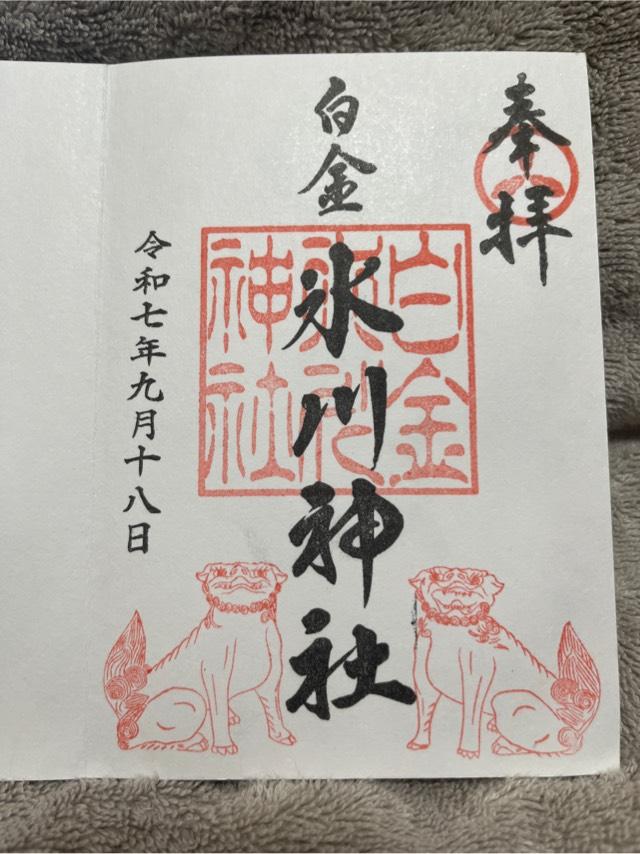 奉拝
白金
氷川神社
白金
氷川
神社
令和七年九月十八日